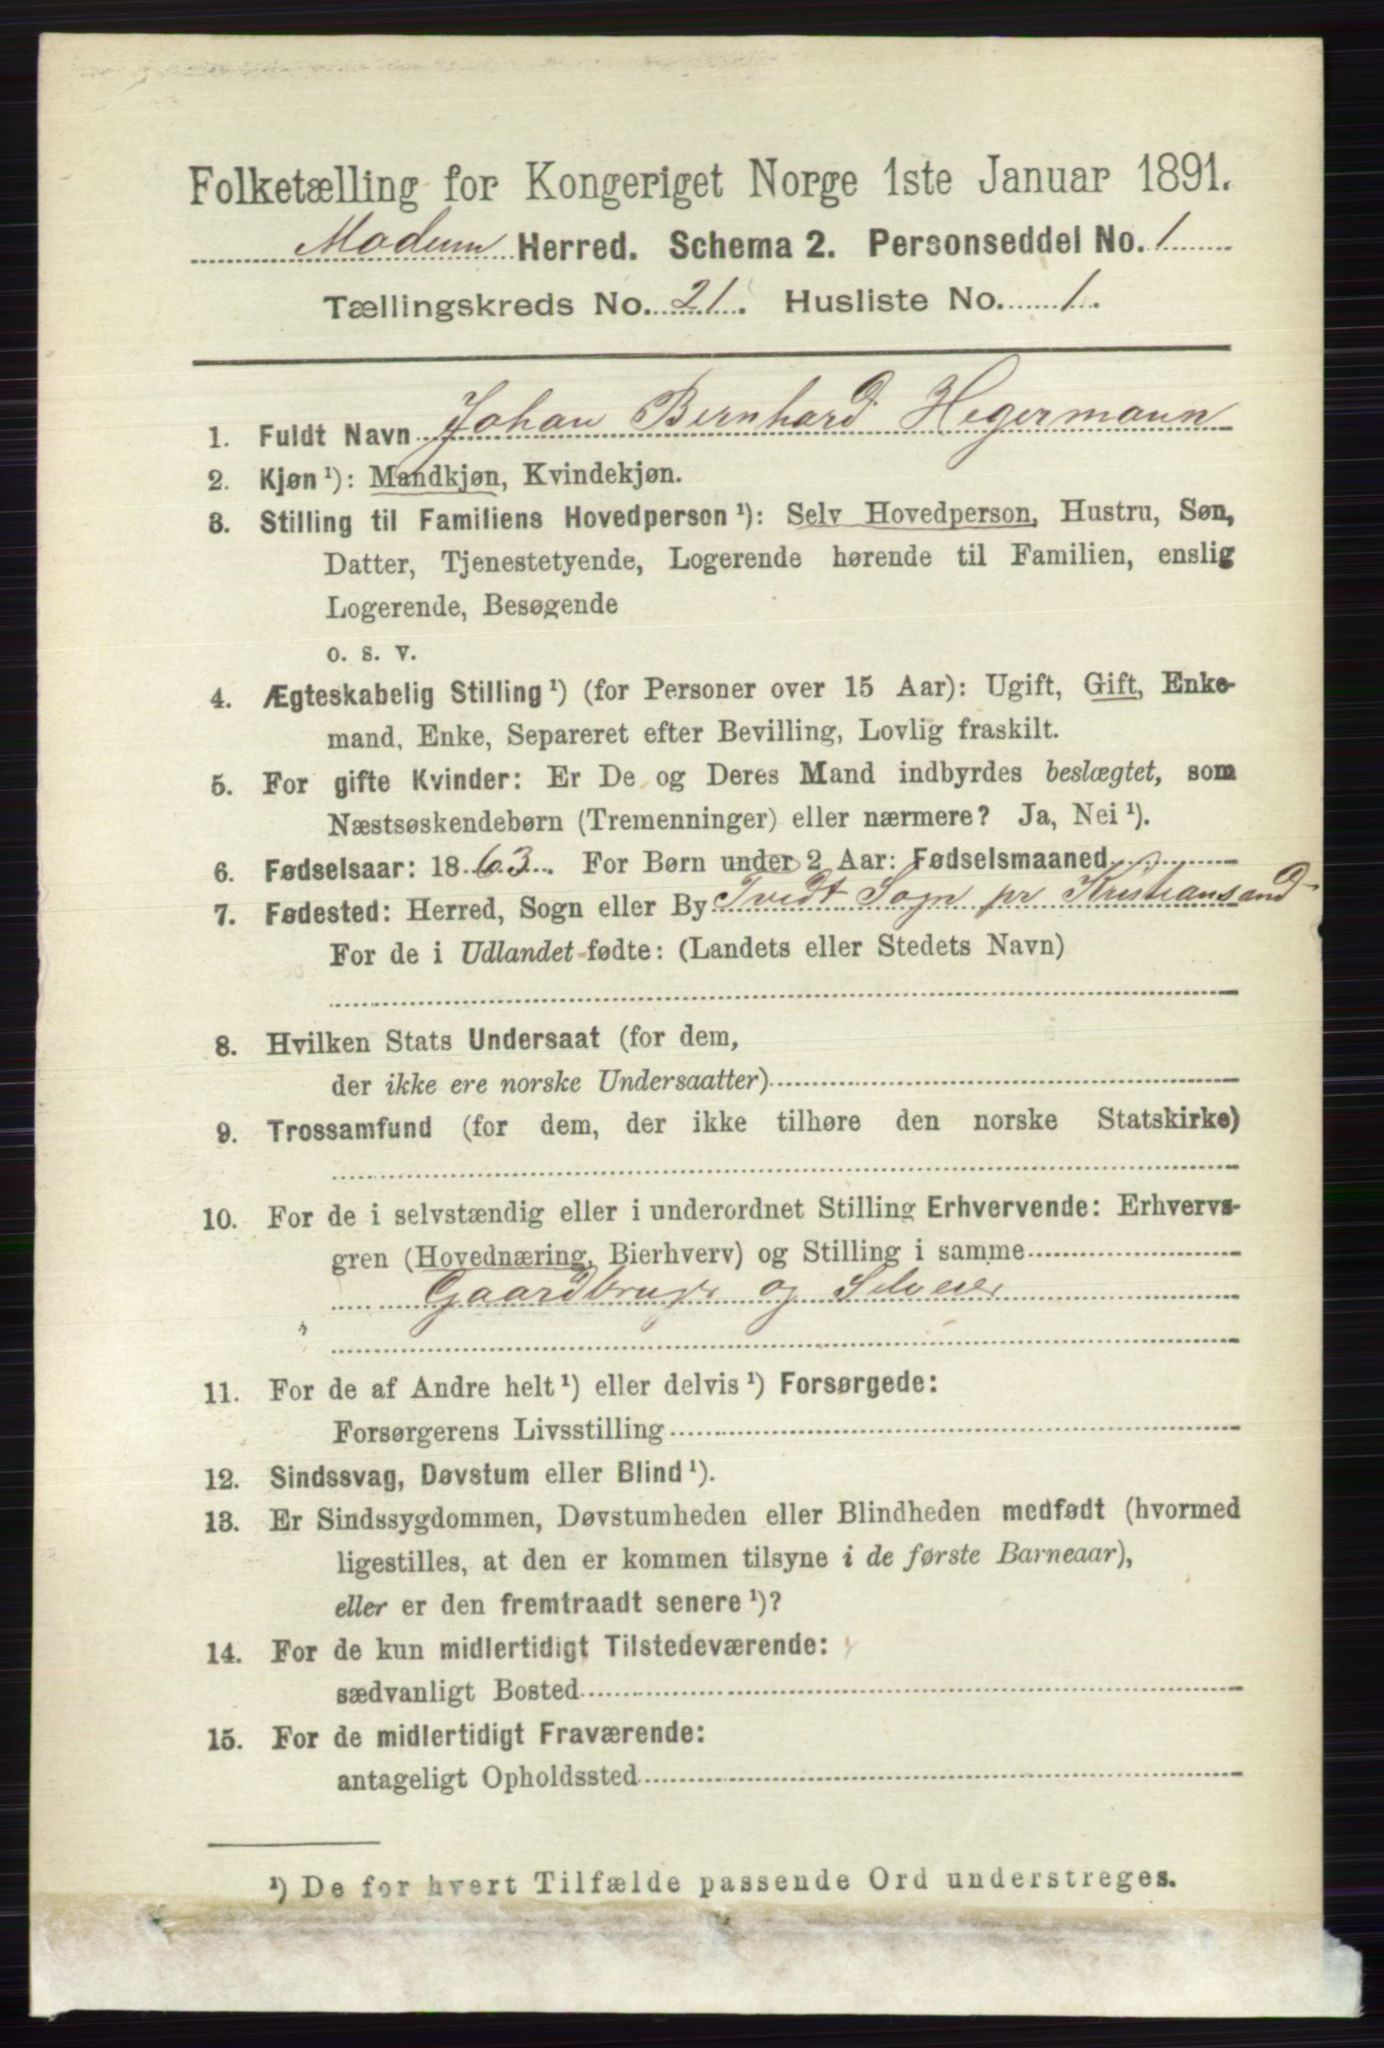 Folketælling for Kongeriget Norge 1ste Januar 1891.
Modum Herred. Schema 2. Personseddel No. 1
Tællingskreds No. 21. Husliste No. 1.
1. Fuldt Navn Johan Bernhard Hegermann
2. Kjøn ¹): Mandkjøn, Kvindekjøn.
3. Stilling til Familiens Hovedperson ¹): Selv Hovedperson, Hustru, Søn,
Datter, Tjenestetyende, Logerende hørende til Familien, enslig
Logerende, Besøgende
o. s. v.
4. Ægteskabelig Stilling ¹) (for Personer over 15 Aar): Ugift, Gift, Enke-
mand, Enke, Separeret efter Bevilling, Lovlig fraskilt.
5. For gifte Kvinder: Er De og Deres Mand indbyrdes beslægtet, som
Næstsøskendebørn (Tremenninger) eller nærmere? Ja, Nei ¹).
6. Fødselsaar: 1863. For Børn under 2 Aar: Fødselsmaaned
7. Fødested: Herred, Sogn eller By Tvedt Sogn pr Kristiansand
For de i Udlandet fødte: (Landets eller Stedets Navn)
8. Hvilken Stats Undersaat (for dem,
der ikke ere norske Undersaatter)
9. Trossamfund (for dem, der ikke tilhøre den norske Statskirke)
10. For de i selvstændig eller i underordnet Stilling Erhvervende: Erhvervs-
gren (Hovednæring, Bierhverv) og Stilling i samme
Gaardbruger og Selveier
11. For de af Andre helt ¹) eller delvis ¹) Forsørgede:
Forsørgerens Livsstilling
12. Sindssvag, Døvstum eller Blind ¹).
13. Er Sindssygdommen, Døvstumheden eller Blindheden medfødt (hvormed
ligestilles, at den er kommen tilsyne i de første Barneaar),
eller er den fremtraadt senere ¹)?
14. For de kun midlertidigt Tilstedeværende:
sædvanligt Bosted
15. For de midlertidigt Fraværende:
antageligt Opholdssted
¹) De for hvert Tilfælde passende Ord understreges.